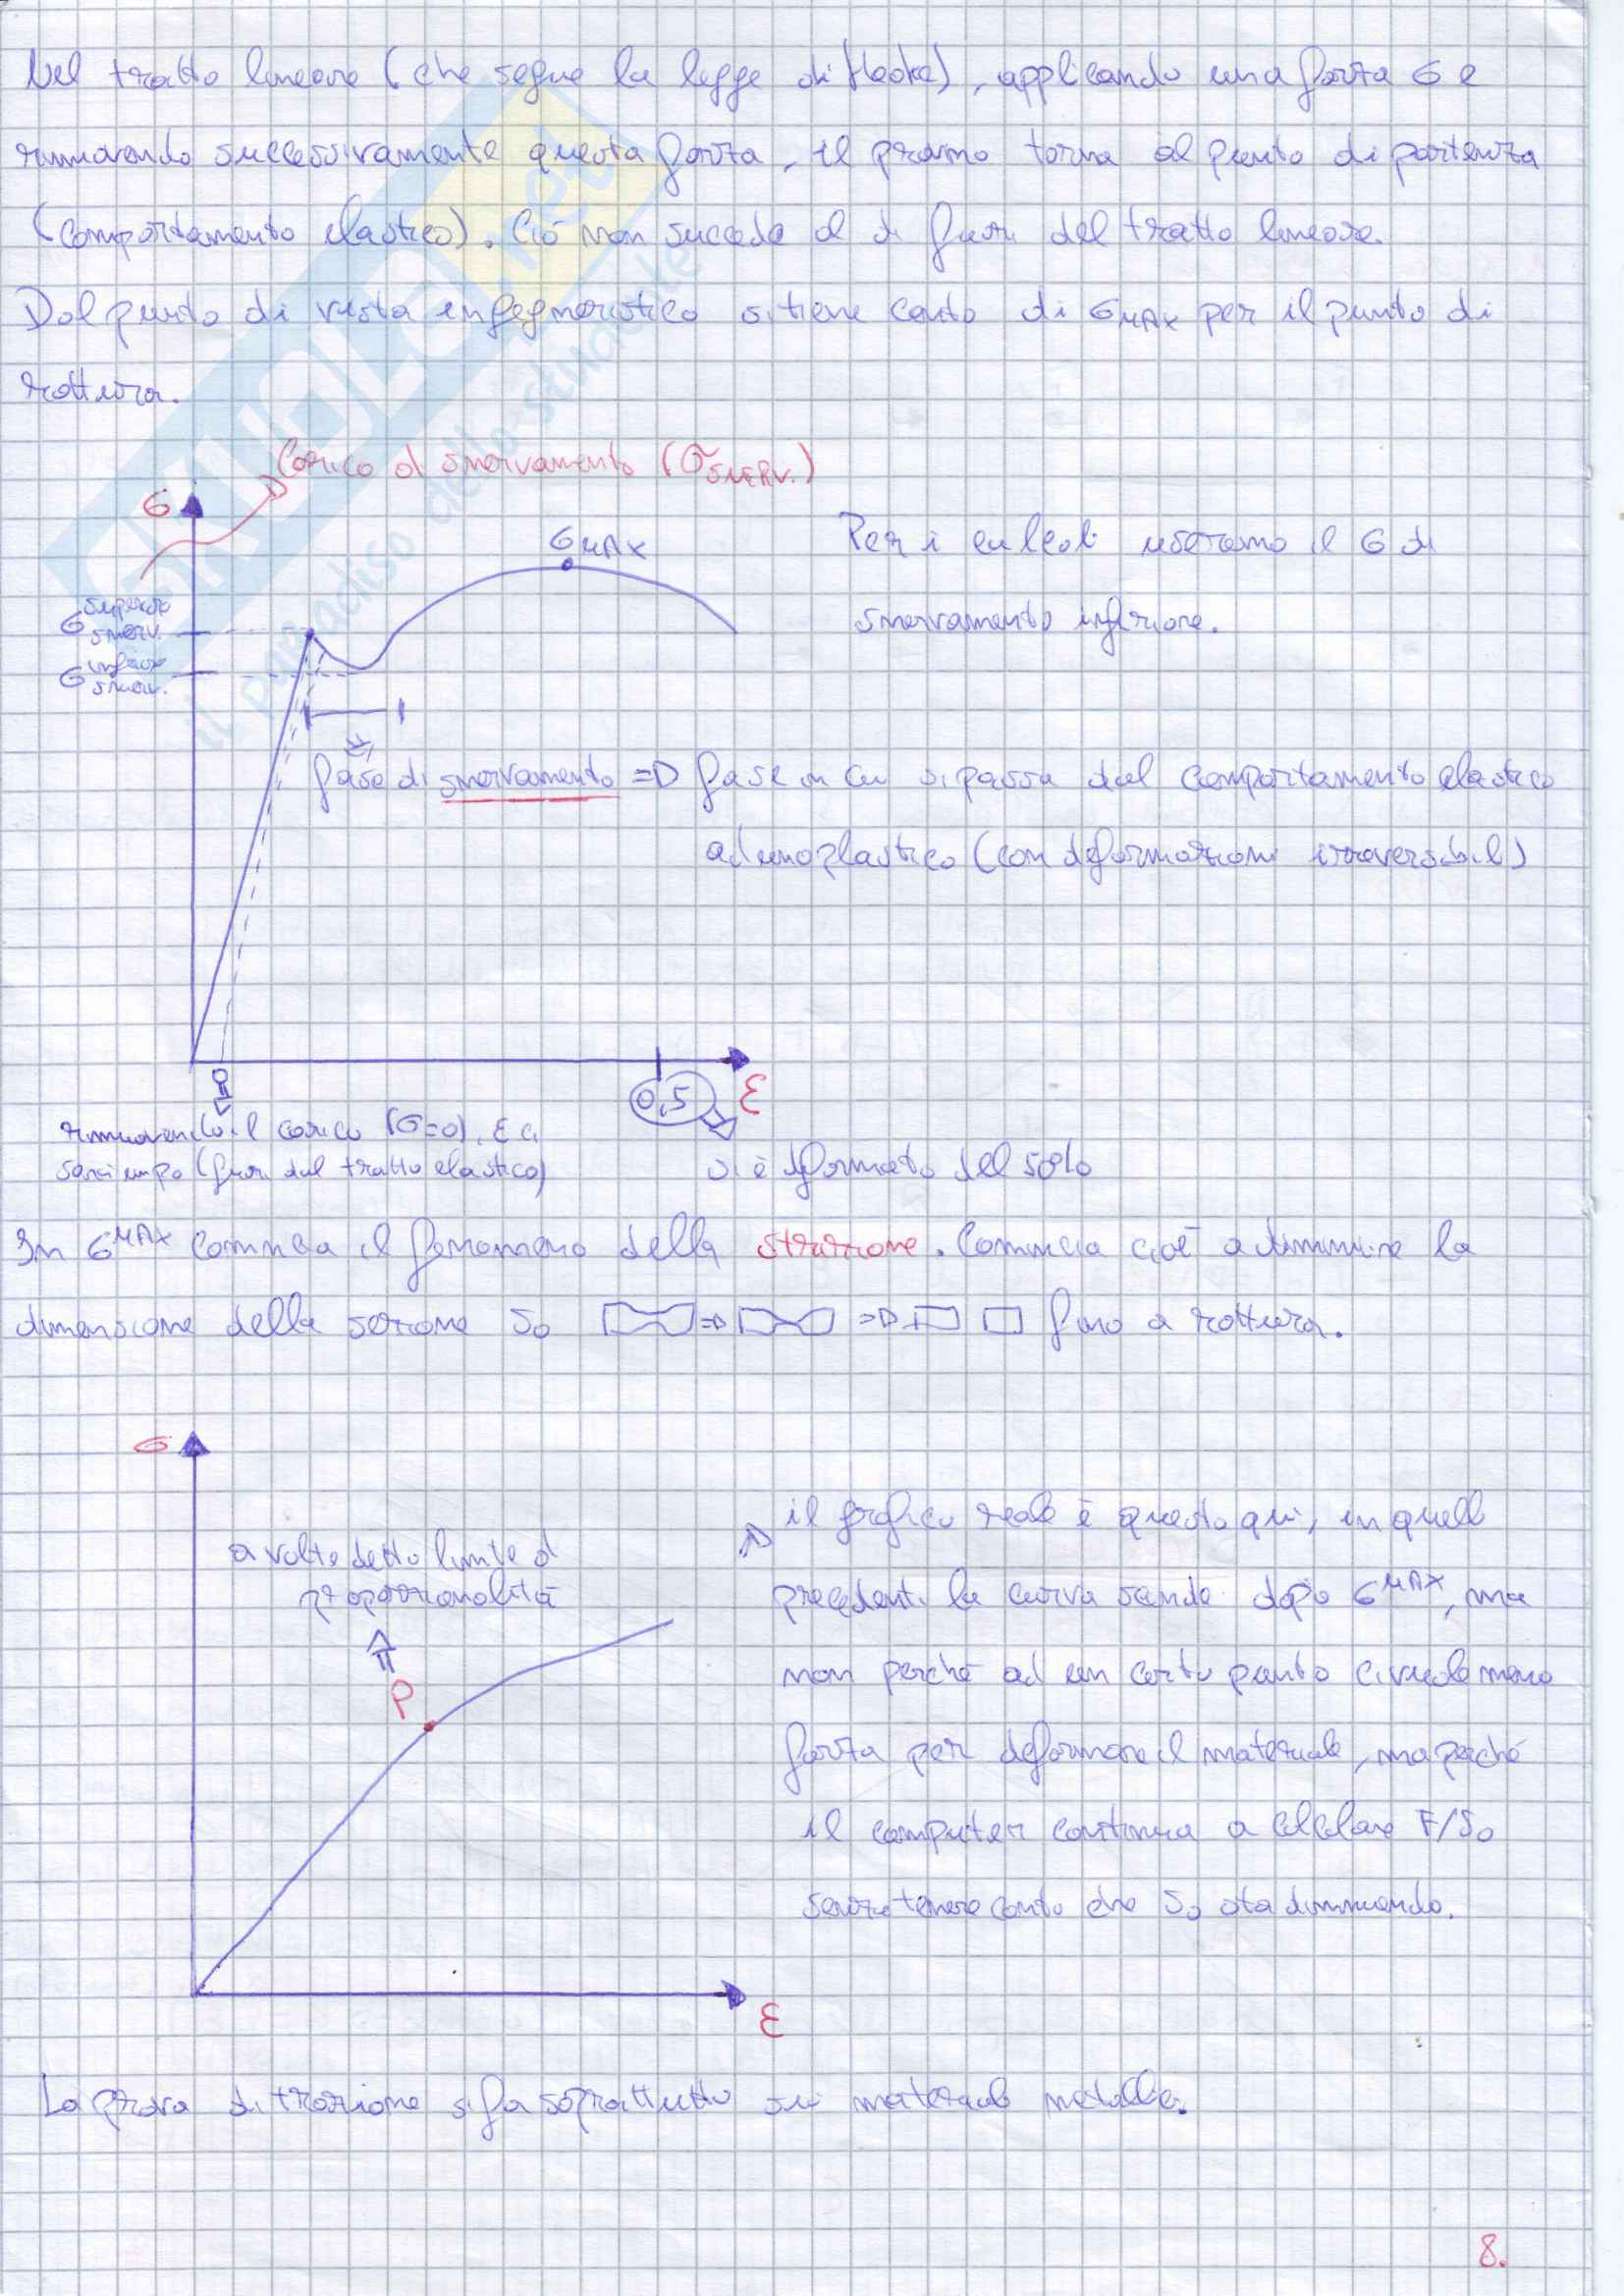 Nel tratto lineare (che segue la legge di Hooke), applicando una forza σ e
rimuovendo successivamente questa forza, il provino torna al punto di partenza
(comportamento elastico). Ciò non succede al di fuori del tratto lineare.
Dal punto di vista ingegneristico si tiene conto di σMAX per il punto di
rottura.
Carico di snervamento (σSNERV.)
σ
σMAX
Per i calcoli useremo il σ di
snervamento inferiore.
σ superiore snerv.
σ inferiore snerv.
fase di snervamento => fase in cui si passa dal comportamento elastico
ad uno plastico (con deformazioni irreversibili)
0,5
ε
rimuovendo il carico (σ=0), ε ci
sarà (fuori dal tratto elastico)
si è deformato del 50%
In σMAX comincia il fenomeno della strizione. Comincia cioè a diminuire la
dimensione della sezione S₀ => => fino a rottura.
σ
a volte detto limite di
proporzionalità
P
il grafico reale è questo qui, in quelli
precedenti la curva scende dopo σMAX, ma
non perché ad un certo punto ci vuole meno
forza per deformare il materiale, ma perché
il computer continua a calcolare F/S₀
senza tenere conto che S₀ sta diminuendo.
ε
La prova di trazione si fa soprattutto sui materiali metallici.
8.
SKUOLA.net
il paradiso dello studente